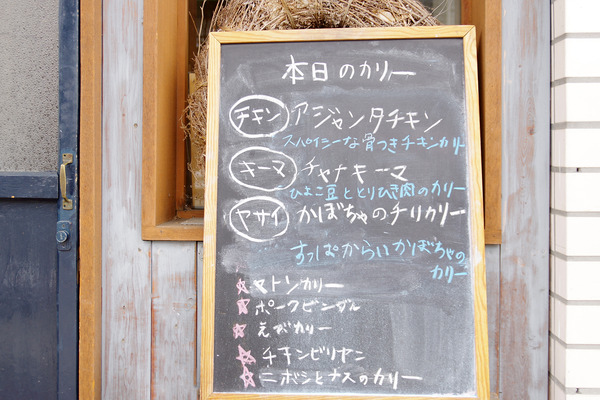 本日のカリー
チキン アジャンタチキン
スパイシーな骨つきチキンカリー
キーマ チャナキーマ
ひよこ豆ととりひき肉のカリー
ヤサイ かぼちゃのチリカリー
すっぱからいかぼちゃの
カリー
☆マトンカリー
☆ポークビンダル
☆えびカリー
☆チキンビリヤニ
☆ニボシとナスのカリー